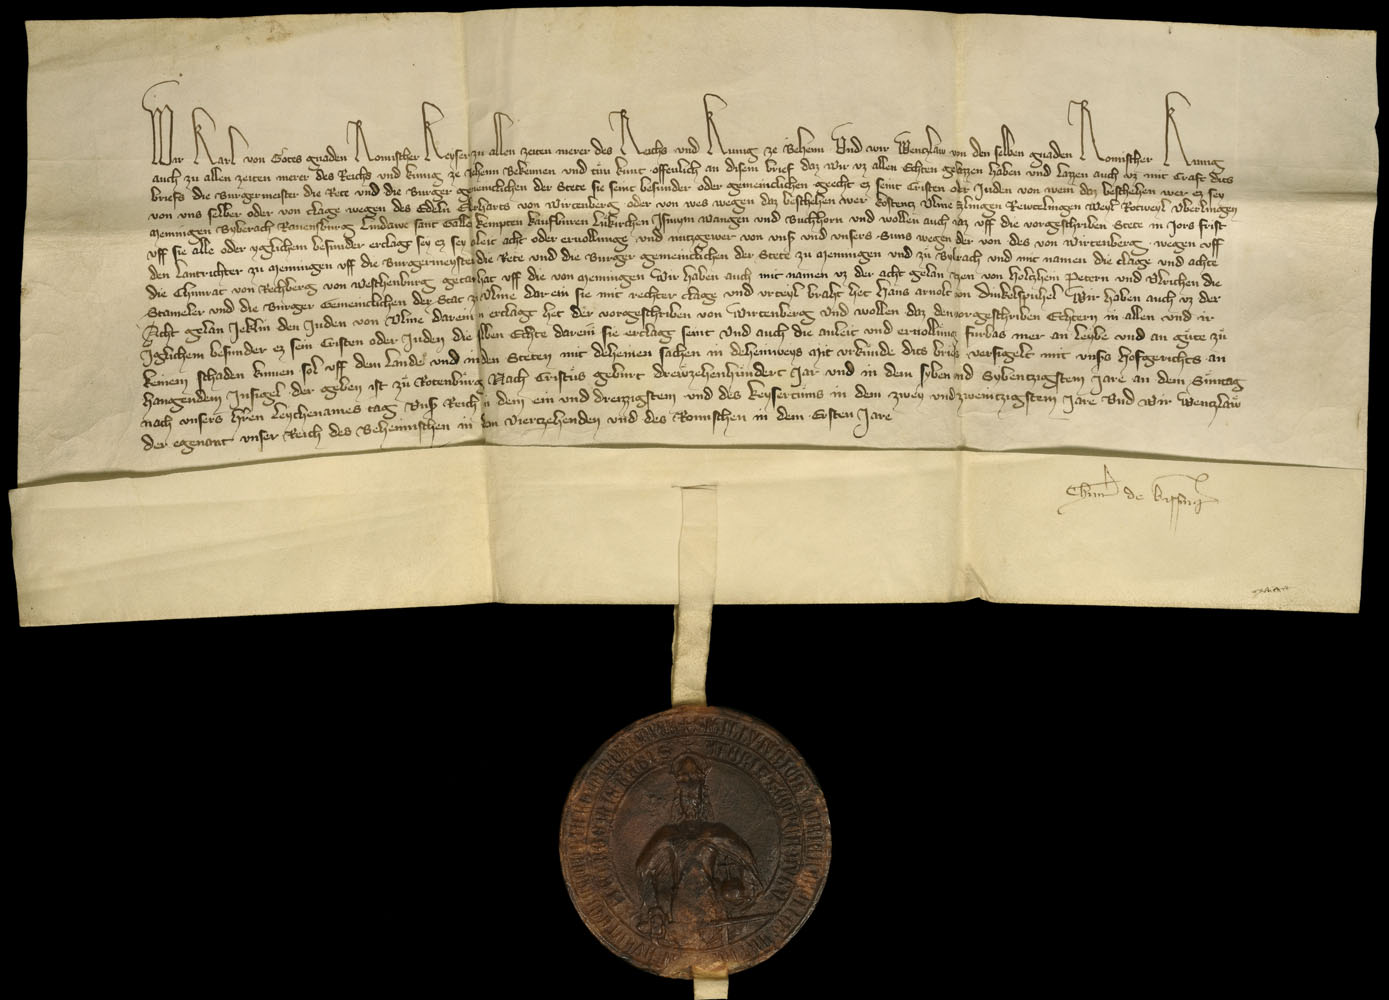 Wir Karl von Gotes gnaden Romischer Keyser zu allen zeiten merer des Reichs und Kunig ze Behem Und wir Wentzlaw von den selben gnaden Romischer Kunig
auch zu allen zeiten merer des Reichs und kunig ze Behem Bekennen und tun kunt offenlich an disem brief daz wir uz allen Echten gelazzen haben und lazzen auch uz mit craft dits
briefs die Burgermeister die Rete und die Burger gemeinclichen der Stete sie seint besunder oder gemeinclichen geecht ez seint Cristen oder Juden von wem daz beschehen wer ez sey
von uns selber oder von clage wegen des Edeln Eberharts von Wirtenberg oder von wes wegen daz beschehen wer Costentz Ulme Ezlingen Rewtelingen Weyl Rotweyl Uberlingen
Memingen Byberach Ravensburg Lindawe sant Galle Kempten Kaufburen Lukirchen Isnym Wangen und Buchhorn und wollen auch daz uff die vorgeschriben Stete in Jors frist
uff sie alle oder yglichem besunder erclagt sey ez sey anleit acht oder ervollunge und nutzgewer von uns und unsers Suns wegen oder von des von Wirtenberg wegen uff
den Lantrichter zu Memingen uff die Burgermeyster die Rete und die Burger gemeinclichen der Stete zu Memingen und zu Bybrach und mit namen die clage und achte
die Chunrat von Rechberg von Weschenburg getan hat uff die von Memingen Wir haben auch mit namen uz der acht gelan von Holtzhem Petern und Ulrichen die
Stameler und die Burger Gemeinclichen der Stat zu Ulme dar ein sie mit rechter clage und urteyl braht het Hans arnolt von Dinkelspuhel Wir haben auch uz der
Acht gelan Jeklin den Juden von Ulme darein erclagt het der vorgeschriben von Wirtenberg Und wollen daz den vorgeschriben Echtern in allen und ir
Iglichem besunder ez sein Cristen oder Juden die selben Echte darein sie erclagt seint Und auch die anleit und ervollung furbas mer an leybe und an gute zu
keinem schaden kumen sol uff dem Lande und in den Steten mit deheinen sachen in deheinweys Mit urkunde dits briefs versigelt mit unsers hofgerichts an
hangendem Insigel der geben ist zu Rotenburg Nach Cristus geburt drewzehenhundert Jar und in dem syben und Sybentzigstem Jare an dem Suntag
nach unsers herren leychenames tag Unser Reich in dem ein und dreizzigstem und des keysertums in dem zwey und zweintzigstem Jare Und Wir Wentzlaw
der egenant unser Reich des Behemischen in dem Viertzehenden und des Romischen in dem Ersten Jare